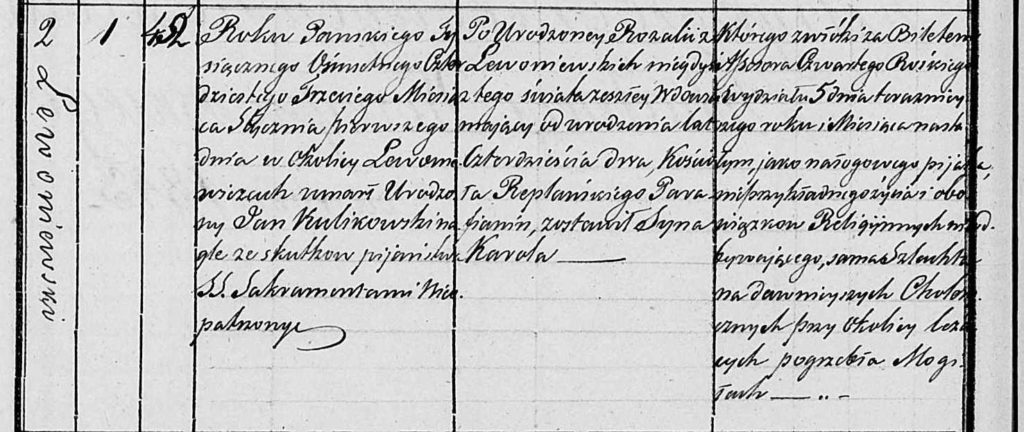 2
Lewoniewski
1
42
Roku Pańskiego Ty
siącznego Ośmsetnego Czter
dziestego Trzeciego Miesią
ca Stycznia pierwszego
dnia w Okolicy Lewonie
wiczach umarł Urodzo
ny Jan Kulikowski na
gle ze skutkow pijaństwa
SS. Sakramentami Nieo
patrzony
Po Urodzoney Rozalii z
Lewoniewskich niegdyś
z tego świata zeszłey Wdowiec
mający od urodzenia lat
Czterdzieścia dwa, Kościo
ła Replańskiego Para
fianin, zostawił Syna
Karola
Którego zwłóki za Biletem
Assesora Czwartego
Wydziału 5 dnia terazniey
szego roku i Miesiąca nasta
łym, jako nałogowego pijaka,
nieprzykładnego życia i obo
wiązkow Religiynych nieod
bywającego, sama Szlachta
na dawnieyszych Cholery
cznych przy Okolicy leżą
cych pogrzebła Mogi
łach